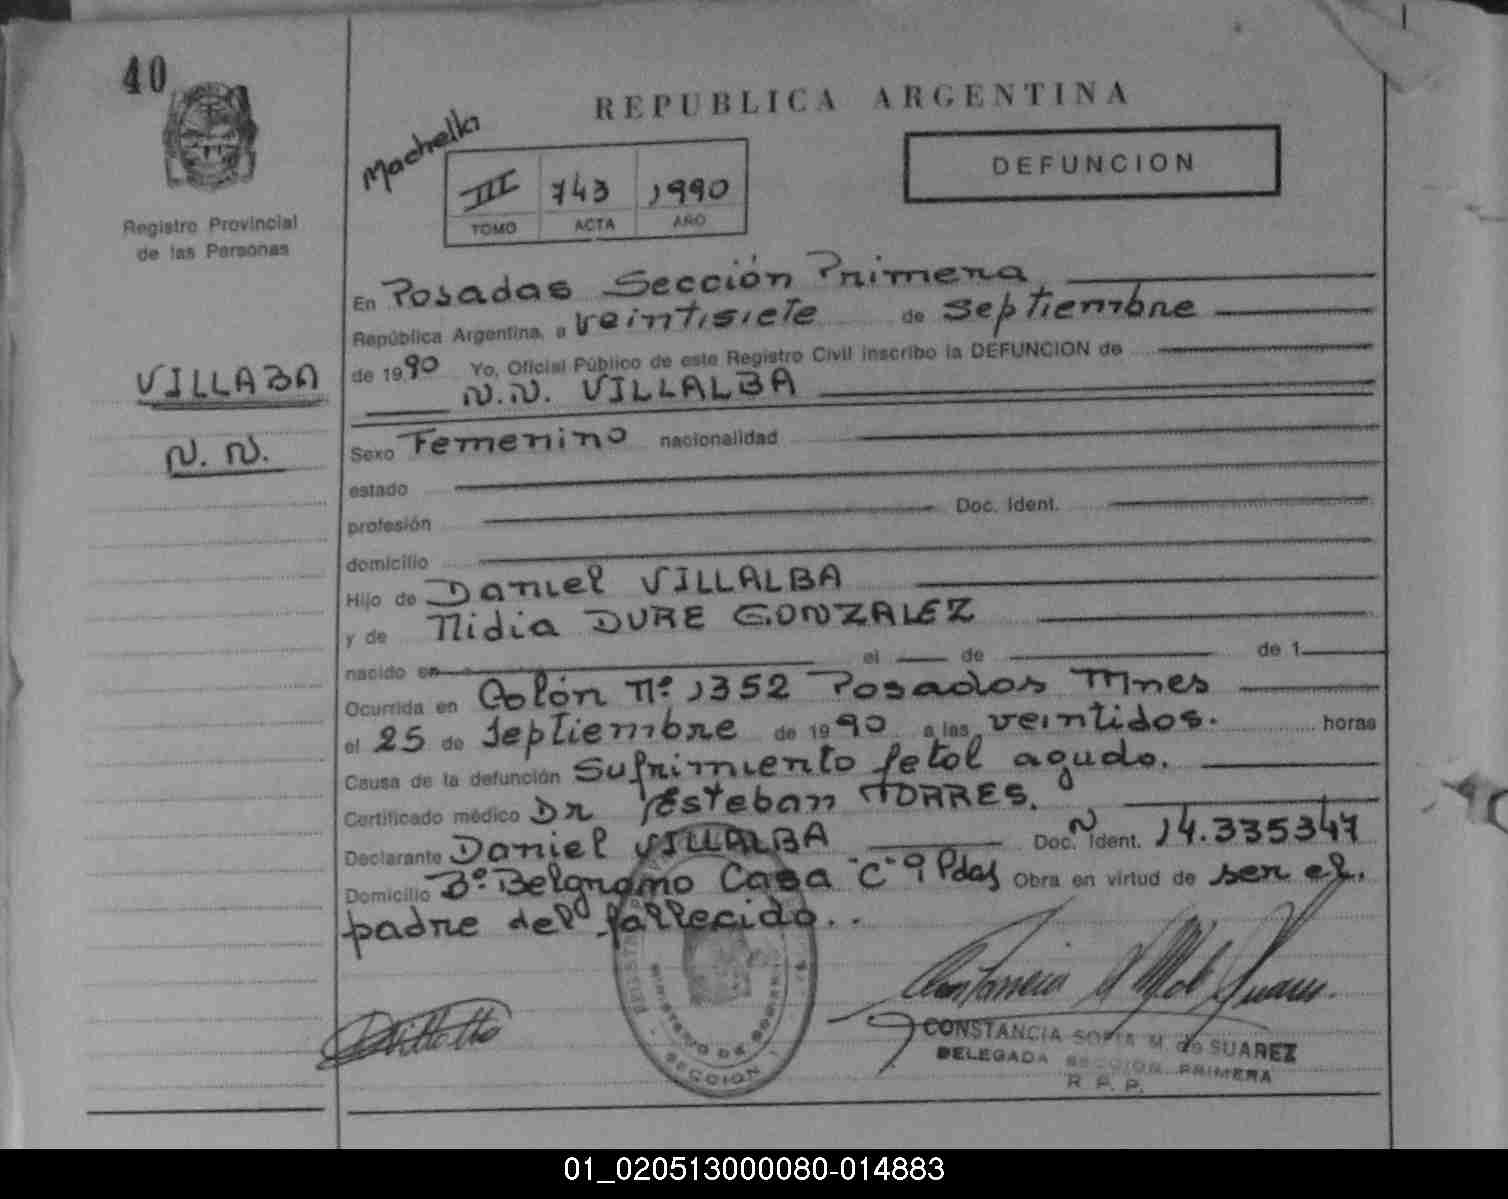 40
Registro Provincial
de las Personas
VILLABA
N. N.
REPUBLICA ARGENTINA
Machella
III 743 1990
TOMO ACTA AÑO
DEFUNCION
En Posadas Sección Primera
República Argentina, a veintisiete de septiembre
de 1990 Yo, Oficial Público de este Registro Civil inscribo la DEFUNCION de
N.N. VILLALBA
Sexo Femenino nacionalidad
estado
profesión Doc. Ident.
domicilio
Hijo de Daniel VILLALBA
y de Nidia DURE GONZALEZ
nacido en el de de 1
Ocurrida en Colón Nº 1352 Posadas Mnes
el 25 de Septiembre de 1990 a las veintidos. horas
Causa de la defunción Sufrimiento fetal agudo.
Certificado médico Dr Esteban TORRES.
Declarante Daniel VILLALBA Doc. N Ident. 14.335347
Domicilio Bº Belgrano Casa "C" 9 Pdas Obra en virtud de ser el.
padre del fallecido..
MINISTERIO DE GOBIERNO
SECCION
CONSTANCIA SOFIA M. de SUAREZ
DELEGADA SECCION PRIMERA
R. P. P.
01_020513000080-014883